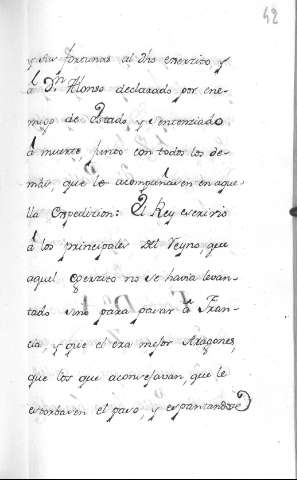 42
y sus fortunas al dho exercito y
a Dn. Alonso declarado por ene-
migo de Estado, y sentenziado
á muerte junto con todos los de-
más, que le acompañasen en aque-
lla Expedizion: El Rey escrivió
á los principales del Reyno que
aquel exercito no se havia levan-
tado sino para pasar á Fran-
cia, y que el era mejor Aragones,
que los que aconsejavan, que le
estorbasen el paso, y espantandose